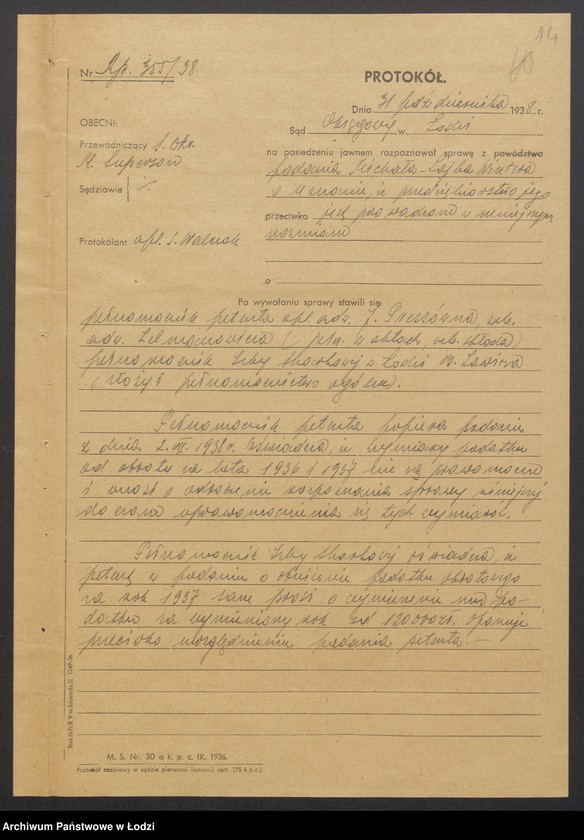 14
10
Nr Rp. 355/38
PROTOKÓŁ.
Dnia 31 października 1938 r.
OBECNI:
Sąd Okręgowy w Łodzi
Przewodniczący S. Okr.
na posiedzeniu jawnem rozpoznawał sprawę z powództwa
podania Michała-Lajba Wintera
Sędziowie
o uznanie iż przedsiębiorstwo jego
przeciwko jest prowadzone w mniejszym
rozmiarze
Protokólant apl. S. Walczak
o
Po wywołaniu sprawy stawili się:
pełnomocnik petenta apl. adw. J. sub.
adw. Zelmanowicza ( w aktach, sub. składa)
pełnomocnik Izby Skarbowej w Łodzi
(złożył pełnomocnictwo ogólne).
Pełnomocnik petenta popiera podanie
z dnia 2. 1938 r. oświadcza, iż wymiary podatku
od obrotu na lata 1936 i 1937 nie są prawomocne
i wnosi o odroczenie rozpoznania sprawy niniejszej
do czasu uprawomocnienia się tych wymiarów.
Pełnomocnik Izby Skarbowej oświadcza, iż
petent w podaniu o obniżenie podatku obrotowego
na rok 1937 sam prosi o wymierzenie mu po-
datku za wymieniony rok od 12000 zł. oponuje
przeciwko uwzględnieniu podania petenta.—
M. S. Nr. 30 a k. p. c. IX. 1936.
Protokół rozprawy w sądzie pierwszej instancji (art. 175 k.p.c.)
Archiwum Państwowe w Łodzi